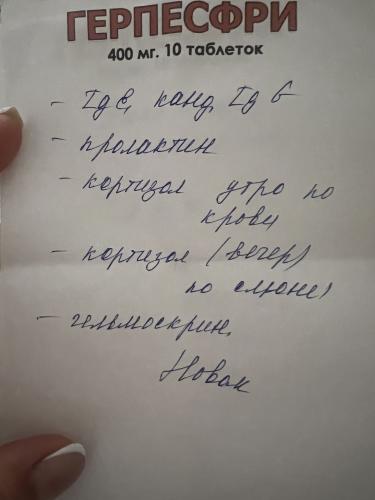 ГЕРПЕСФРИ
400 мг. 10 таблеток
- Ig E, канд. Ig G
- пролактин
- кортизол утро по
крови
- кортизол (вечер)
по слюне)
- гельмоскрин.
Новак